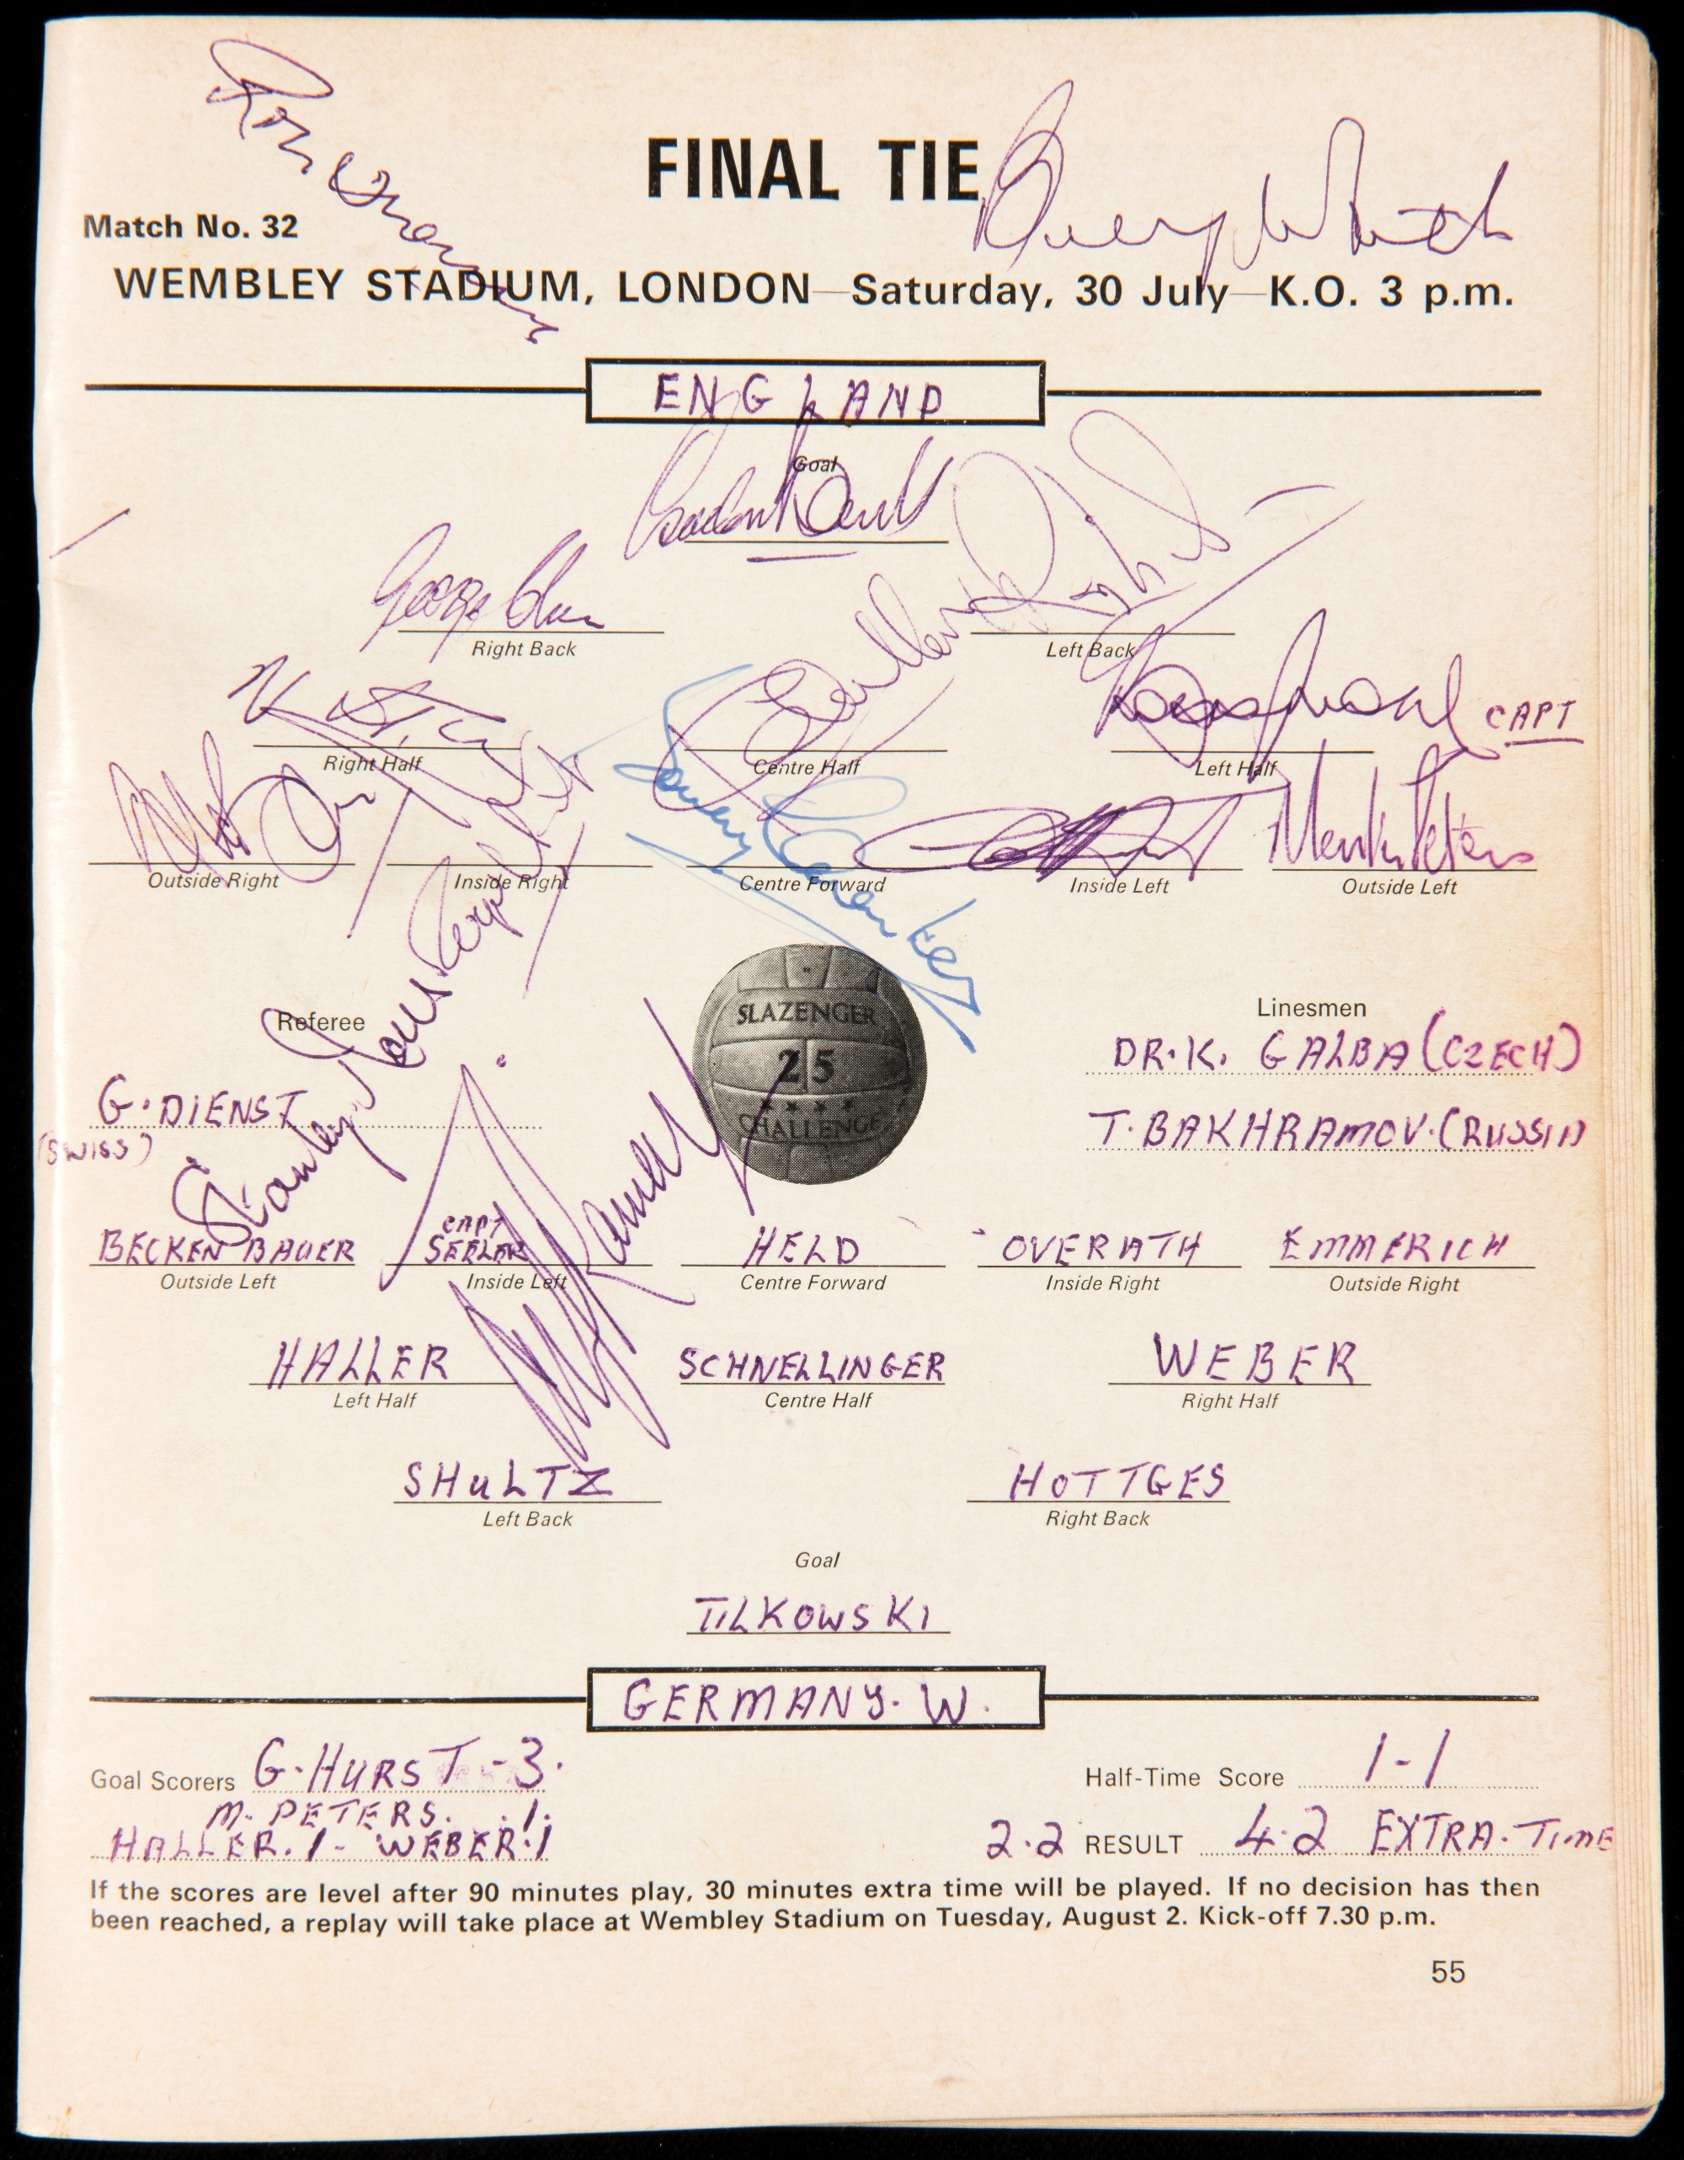 FINAL TIE
Match No. 32
WEMBLEY STADIUM, LONDON—Saturday, 30 July—K.O. 3 p.m.
ENGLAND
Goal
Gordon Banks
George Cohen
Right Back
Left Back
CAPT
Right Half
Centre Half
Left Half
Martin Peters
Outside Right
Inside Right
Centre Forward
Inside Left
Outside Left
SLAZENGER
25
CHALLENGE
Referee
G. DIENST
(SWISS)
Linesmen
DR. K. GALBA (CZECH)
T. BAKHRAMOV. (RUSSIA)
A Ramsey
BECKENBAUER
CAPT
SEELER
HELD
OVERATH
EMMERICH
Outside Left
Inside Left
Centre Forward
Inside Right
Outside Right
HALLER
SCHNELLINGER
WEBER
Left Half
Centre Half
Right Half
SHULTZ
HOTTGES
Left Back
Right Back
Goal
TILKOWSKI
GERMANY. W.
Goal Scorers G. HURST - 3.
M. PETERS. . 1.
HALLER. 1 - WEBER. 1
Half-Time Score 1-1
2.2 RESULT 4.2 EXTRA. TIME
If the scores are level after 90 minutes play, 30 minutes extra time will be played. If no decision has then
been reached, a replay will take place at Wembley Stadium on Tuesday, August 2. Kick-off 7.30 p.m.
55